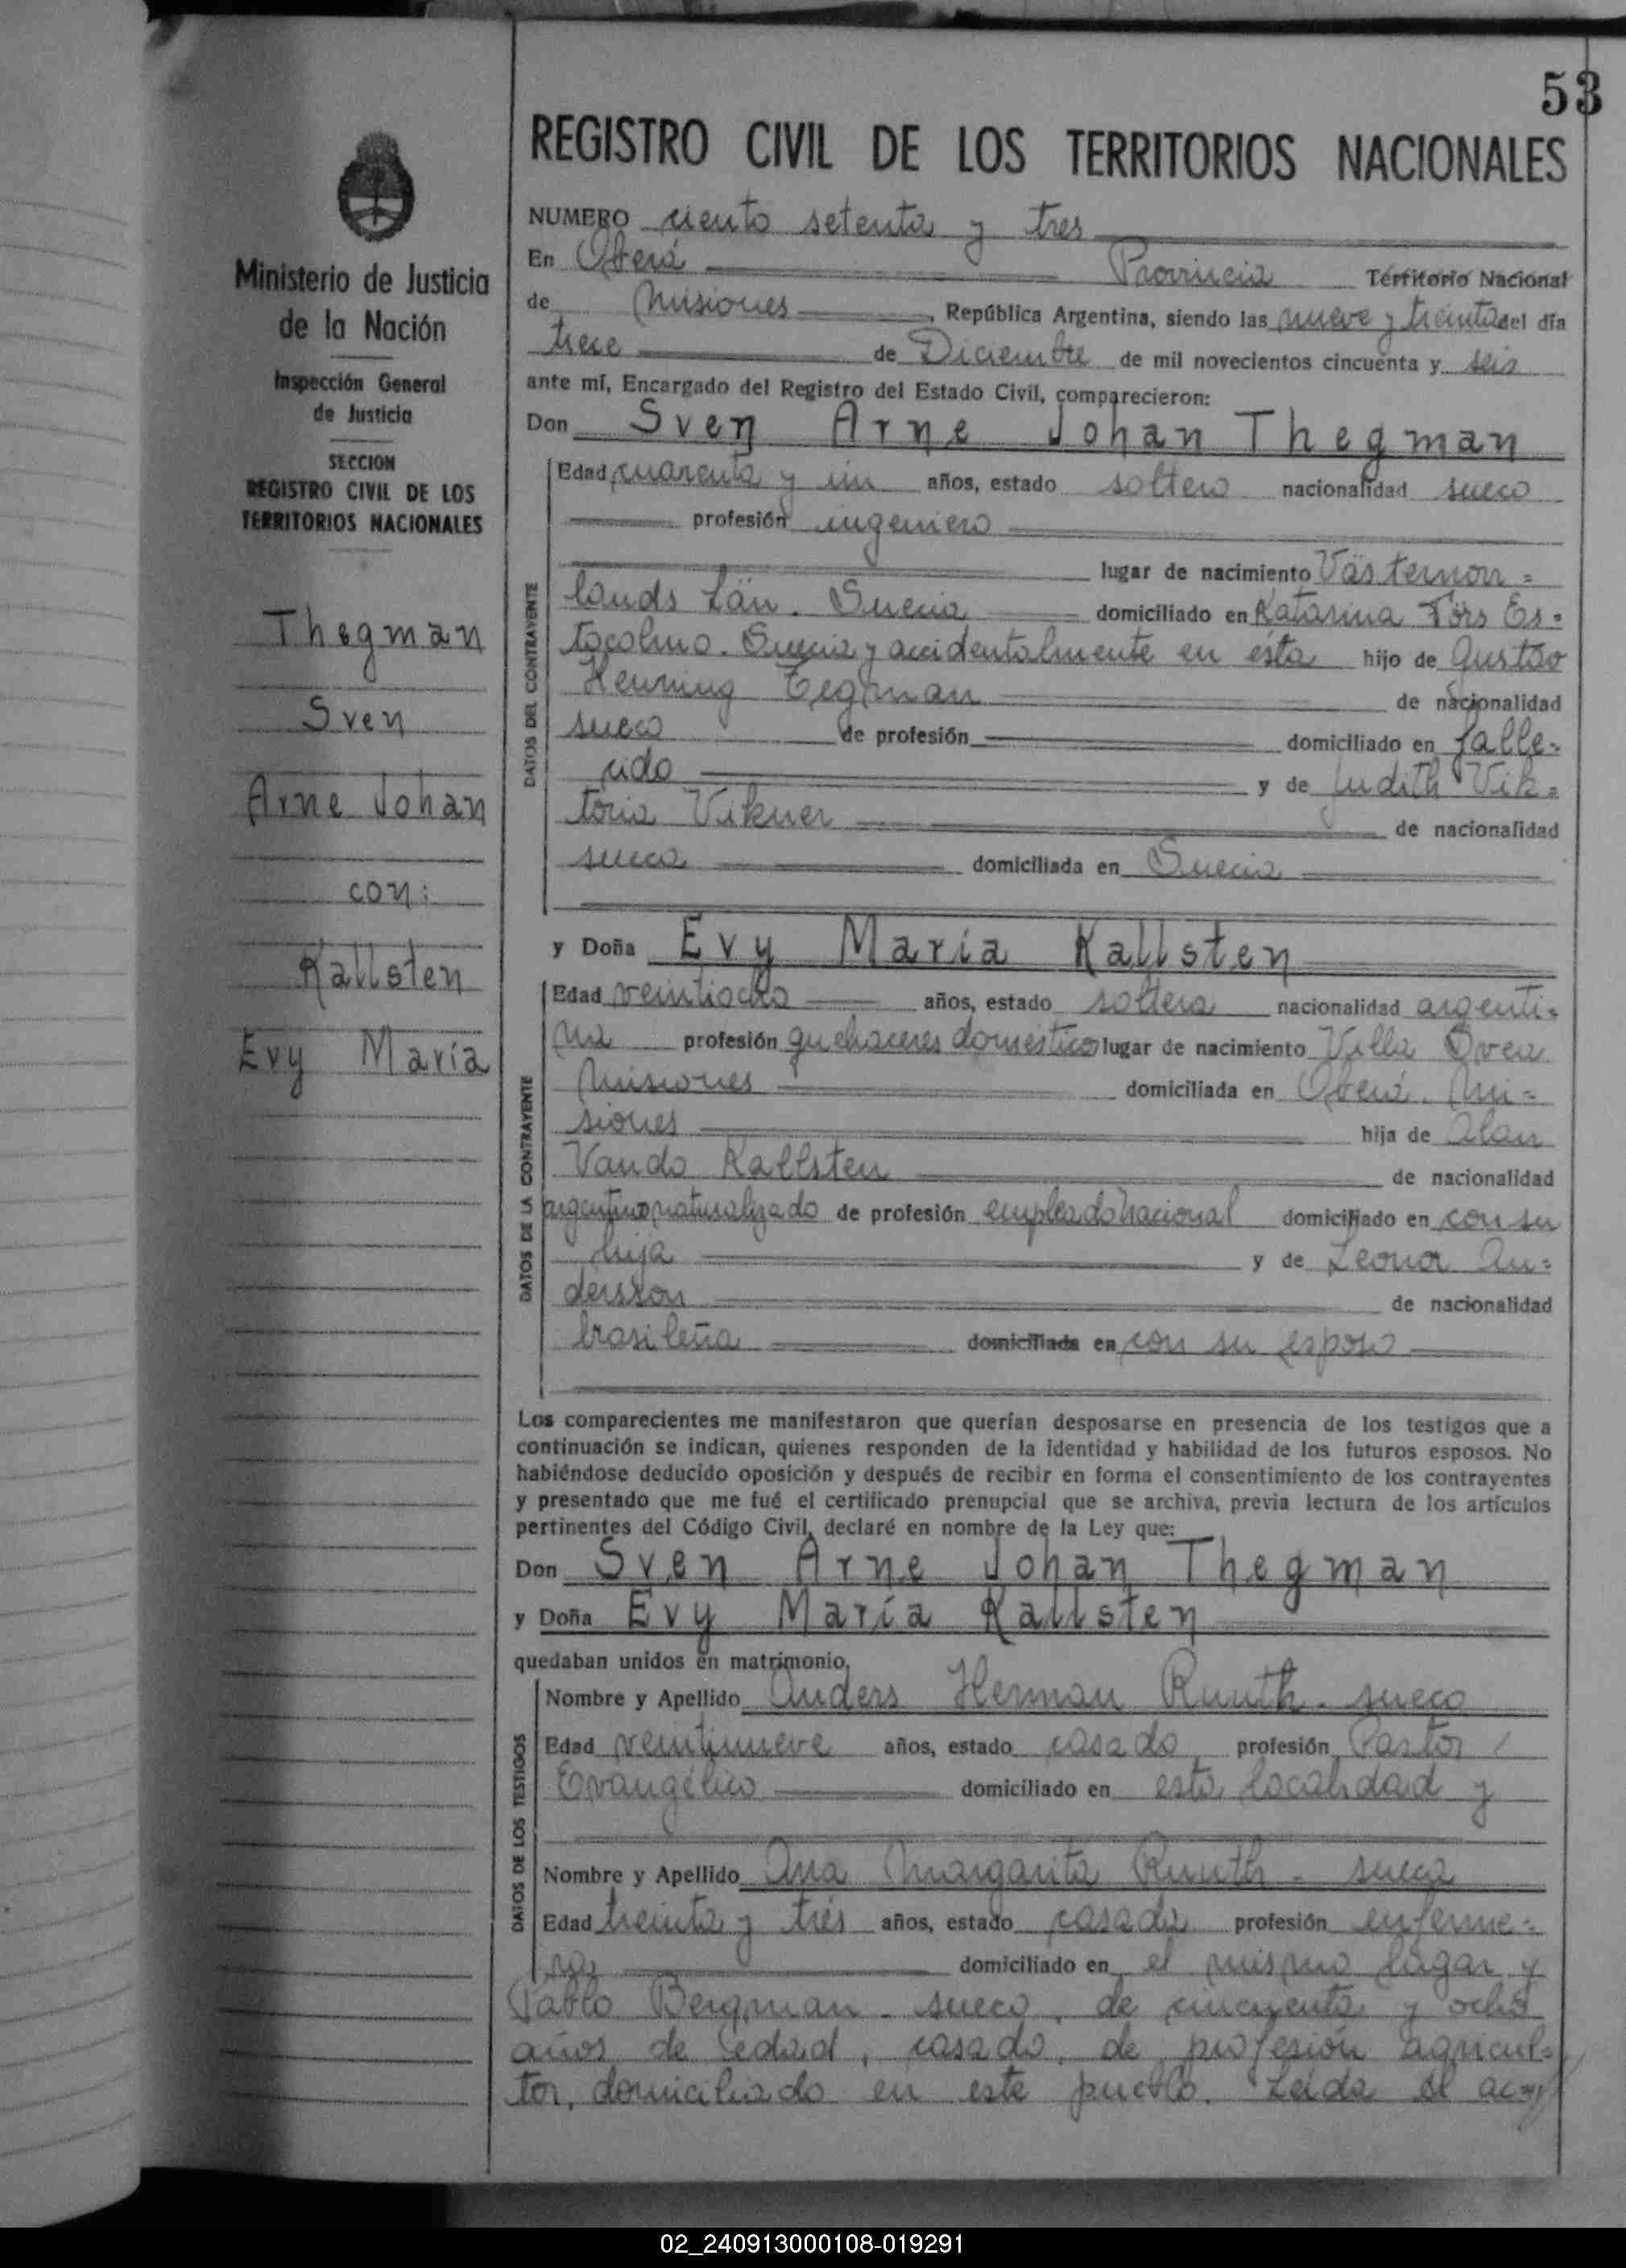 53
REGISTRO CIVIL DE LOS TERRITORIOS NACIONALES
Ministerio de Justicia
de la Nación
Inspección General
de Justicia
SECCION
REGISTRO CIVIL DE LOS
TERRITORIOS NACIONALES
Thegman
Sven
Arne Johan
con:
Kallsten
Evy María
NUMERO ciento setenta y tres
En Oberá Provincia Territorio Nacional
de Misiones, República Argentina, siendo las nueve y treinta del día
trece de Diciembre de mil novecientos cincuenta y seis
ante mí, Encargado del Registro del Estado Civil, comparecieron:
Don Sven Arne Johan Thegman
DATOS DEL CONTRAYENTE
Edad cuarenta y un años, estado soltero nacionalidad sueco
profesión ingeniero
lugar de nacimiento Västernorr=
lands Län. Suecia domiciliado en KatarinaFörs Es=
tocolmo. Suecia y accidentalmente en ésta hijo de Gustav
Henning Tegman de nacionalidad
sueco de profesión domiciliado en falle=
cido y de Judith Vik=
toria Vikner de nacionalidad
sueca domiciliada en Suecia
y Doña Evy María Kallsten
DATOS DE LA CONTRAYENTE
Edad veintiocho años, estado soltera nacionalidad argenti=
na profesión quehaceres doméstico lugar de nacimiento Villa Svea
Misiones domiciliada en Oberá. Mi=
siones hija de Alan
Vando Kallsten de nacionalidad
argentino naturalizado de profesión empleado nacional domiciliado en con su
hija y de Leonor An=
dersson de nacionalidad
brasileña domiciliada en con su esposo
Los comparecientes me manifestaron que querían desposarse en presencia de los testigos que a
continuación se indican, quienes responden de la identidad y habilidad de los futuros esposos. No
habiéndose deducido oposición y después de recibir en forma el consentimiento de los contrayentes
y presentado que me fué el certificado prenupcial que se archiva, previa lectura de los artículos
pertinentes del Código Civil, declaré en nombre de la Ley que:
Don Sven Arne Johan Thegman
y Doña Evy María Kallsten
quedaban unidos en matrimonio.
DATOS DE LOS TESTIGOS
Nombre y Apellido Anders Herman Ruuth. sueco
Edad veintinueve años, estado casado profesión Pastor
Evangélico domiciliado en esta localidad y
Nombre y Apellido Ana Margarita Ruuth - sueca
Edad treinta y tres años, estado casada profesión enferme=
ra domiciliado en el mismo lugar y
Pablo Bergman. sueco, de cincuenta y ocho
años de edad, casado, de profesión agricul=
tor, domiciliado en este pueblo. Leida el ac=
02_240913000108-019291